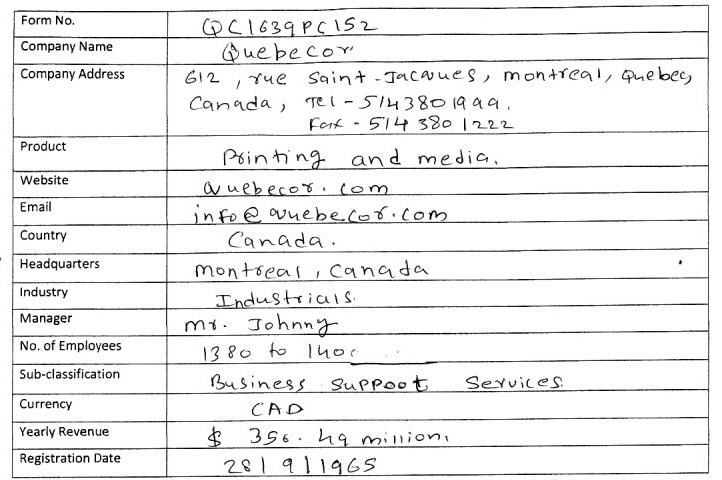 Form No. QC1639PC152
Company Name Quebecor
Company Address 612, rue Saint-Jacques, montreal, Quebec,
Canada, Tel - 5143801999.
Fax - 514 380 1222
Product Printing and media.
Website Quebecor.com
Email info@quebecor.com
Country Canada.
Headquarters montreal, Canada
Industry Industrials.
Manager mr. Johnny
No. of Employees 1380 to
Sub-classification Business Suppoot Services.
Currency CAD
Yearly Revenue $ 356.49 million.
Registration Date 28/9/1965